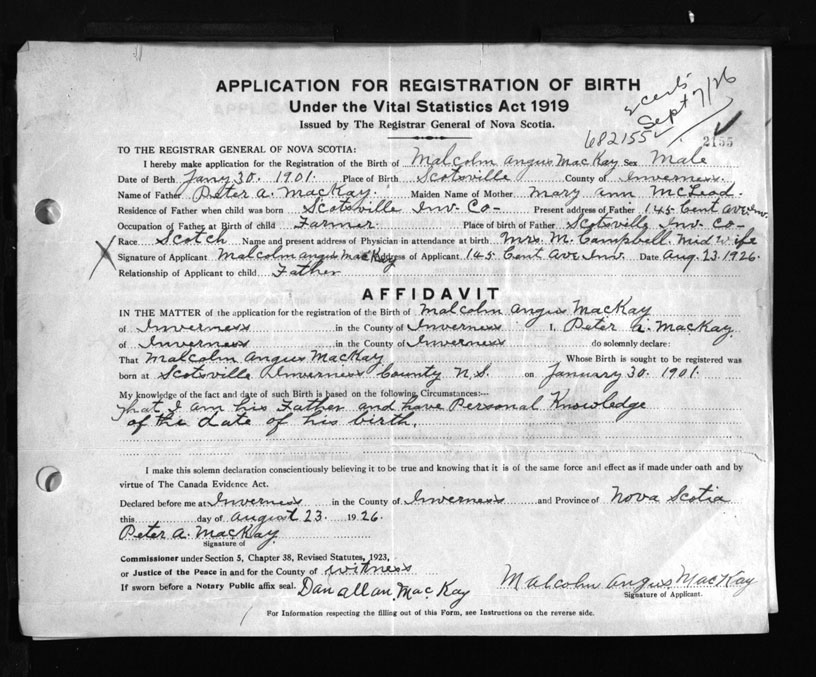 APPLICATION FOR REGISTRATION OF BIRTH
Under the Vital Statistics Act 1919
Issued by The Registrar General of Nova Scotia.
Sept 7/26
682155
2155
TO THE REGISTRAR GENERAL OF NOVA SCOTIA:
I hereby make application for the Registration of the Birth of Malcolm Angus MacKay Sex Male
Date of Birth Jany 30. 1901. Place of Birth Scotsville County of Inverness.
Name of Father Peter A. MacKay. Maiden Name of Mother Mary Ann McLeod.
Residence of Father when child was born Scotsville Inv. Co- Present address of Father 145 Cent Ave Inv.
Occupation of Father at Birth of child Farmer Place of birth of Father Scotsville Inv. Co-
Race Scotch Name and present address of Physician in attendance at birth Mrs. M. Campbell. Mid Wife
X Signature of Applicant Malcolm Angus MacKay Address of Applicant 145 Cent Ave Inv. Date Aug. 23. 1926.
Relationship of Applicant to child Father
AFFIDAVIT
IN THE MATTER of the application for the registration of the Birth of Malcolm Angus MacKay
of Inverness in the County of Inverness I, Peter A. MacKay.
of Inverness in the County of Inverness do solemnly declare:
That Malcolm Angus MacKay Whose Birth is sought to be registered was
born at Scotsville Inverness County N.S. on January 30. 1901.
My knowledge of the fact and date of such Birth is based on the following Circumstances:—
That I am his Father and have Personal Knowledge
of the date of his birth.
I make this solemn declaration conscientiously believing it to be true and knowing that it is of the same force and effect as if made under oath and by
virtue of The Canada Evidence Act.
Declared before me at Inverness in the County of Inverness and Province of Nova Scotia
this day of August 23. 1926.
Peter A. MacKay.
Signature of
Commissioner under Section 5, Chapter 38, Revised Statutes, 1923,
or Justice of the Peace in and for the County of witness
If sworn before a Notary Public affix seal. Dan Allan MacKay
Malcolm Angus MacKay
Signature of Applicant.
For Information respecting the filling out of this Form, see Instructions on the reverse side.